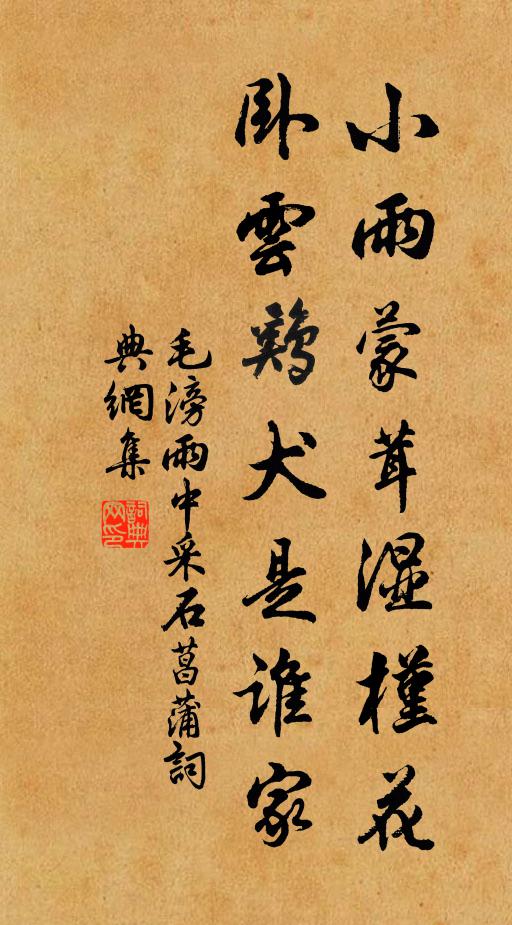 小雨蒙茸湿槿花
卧雲鷄犬是谁家
毛滂雨中采石菖蒲詞
典網集
詞典网印